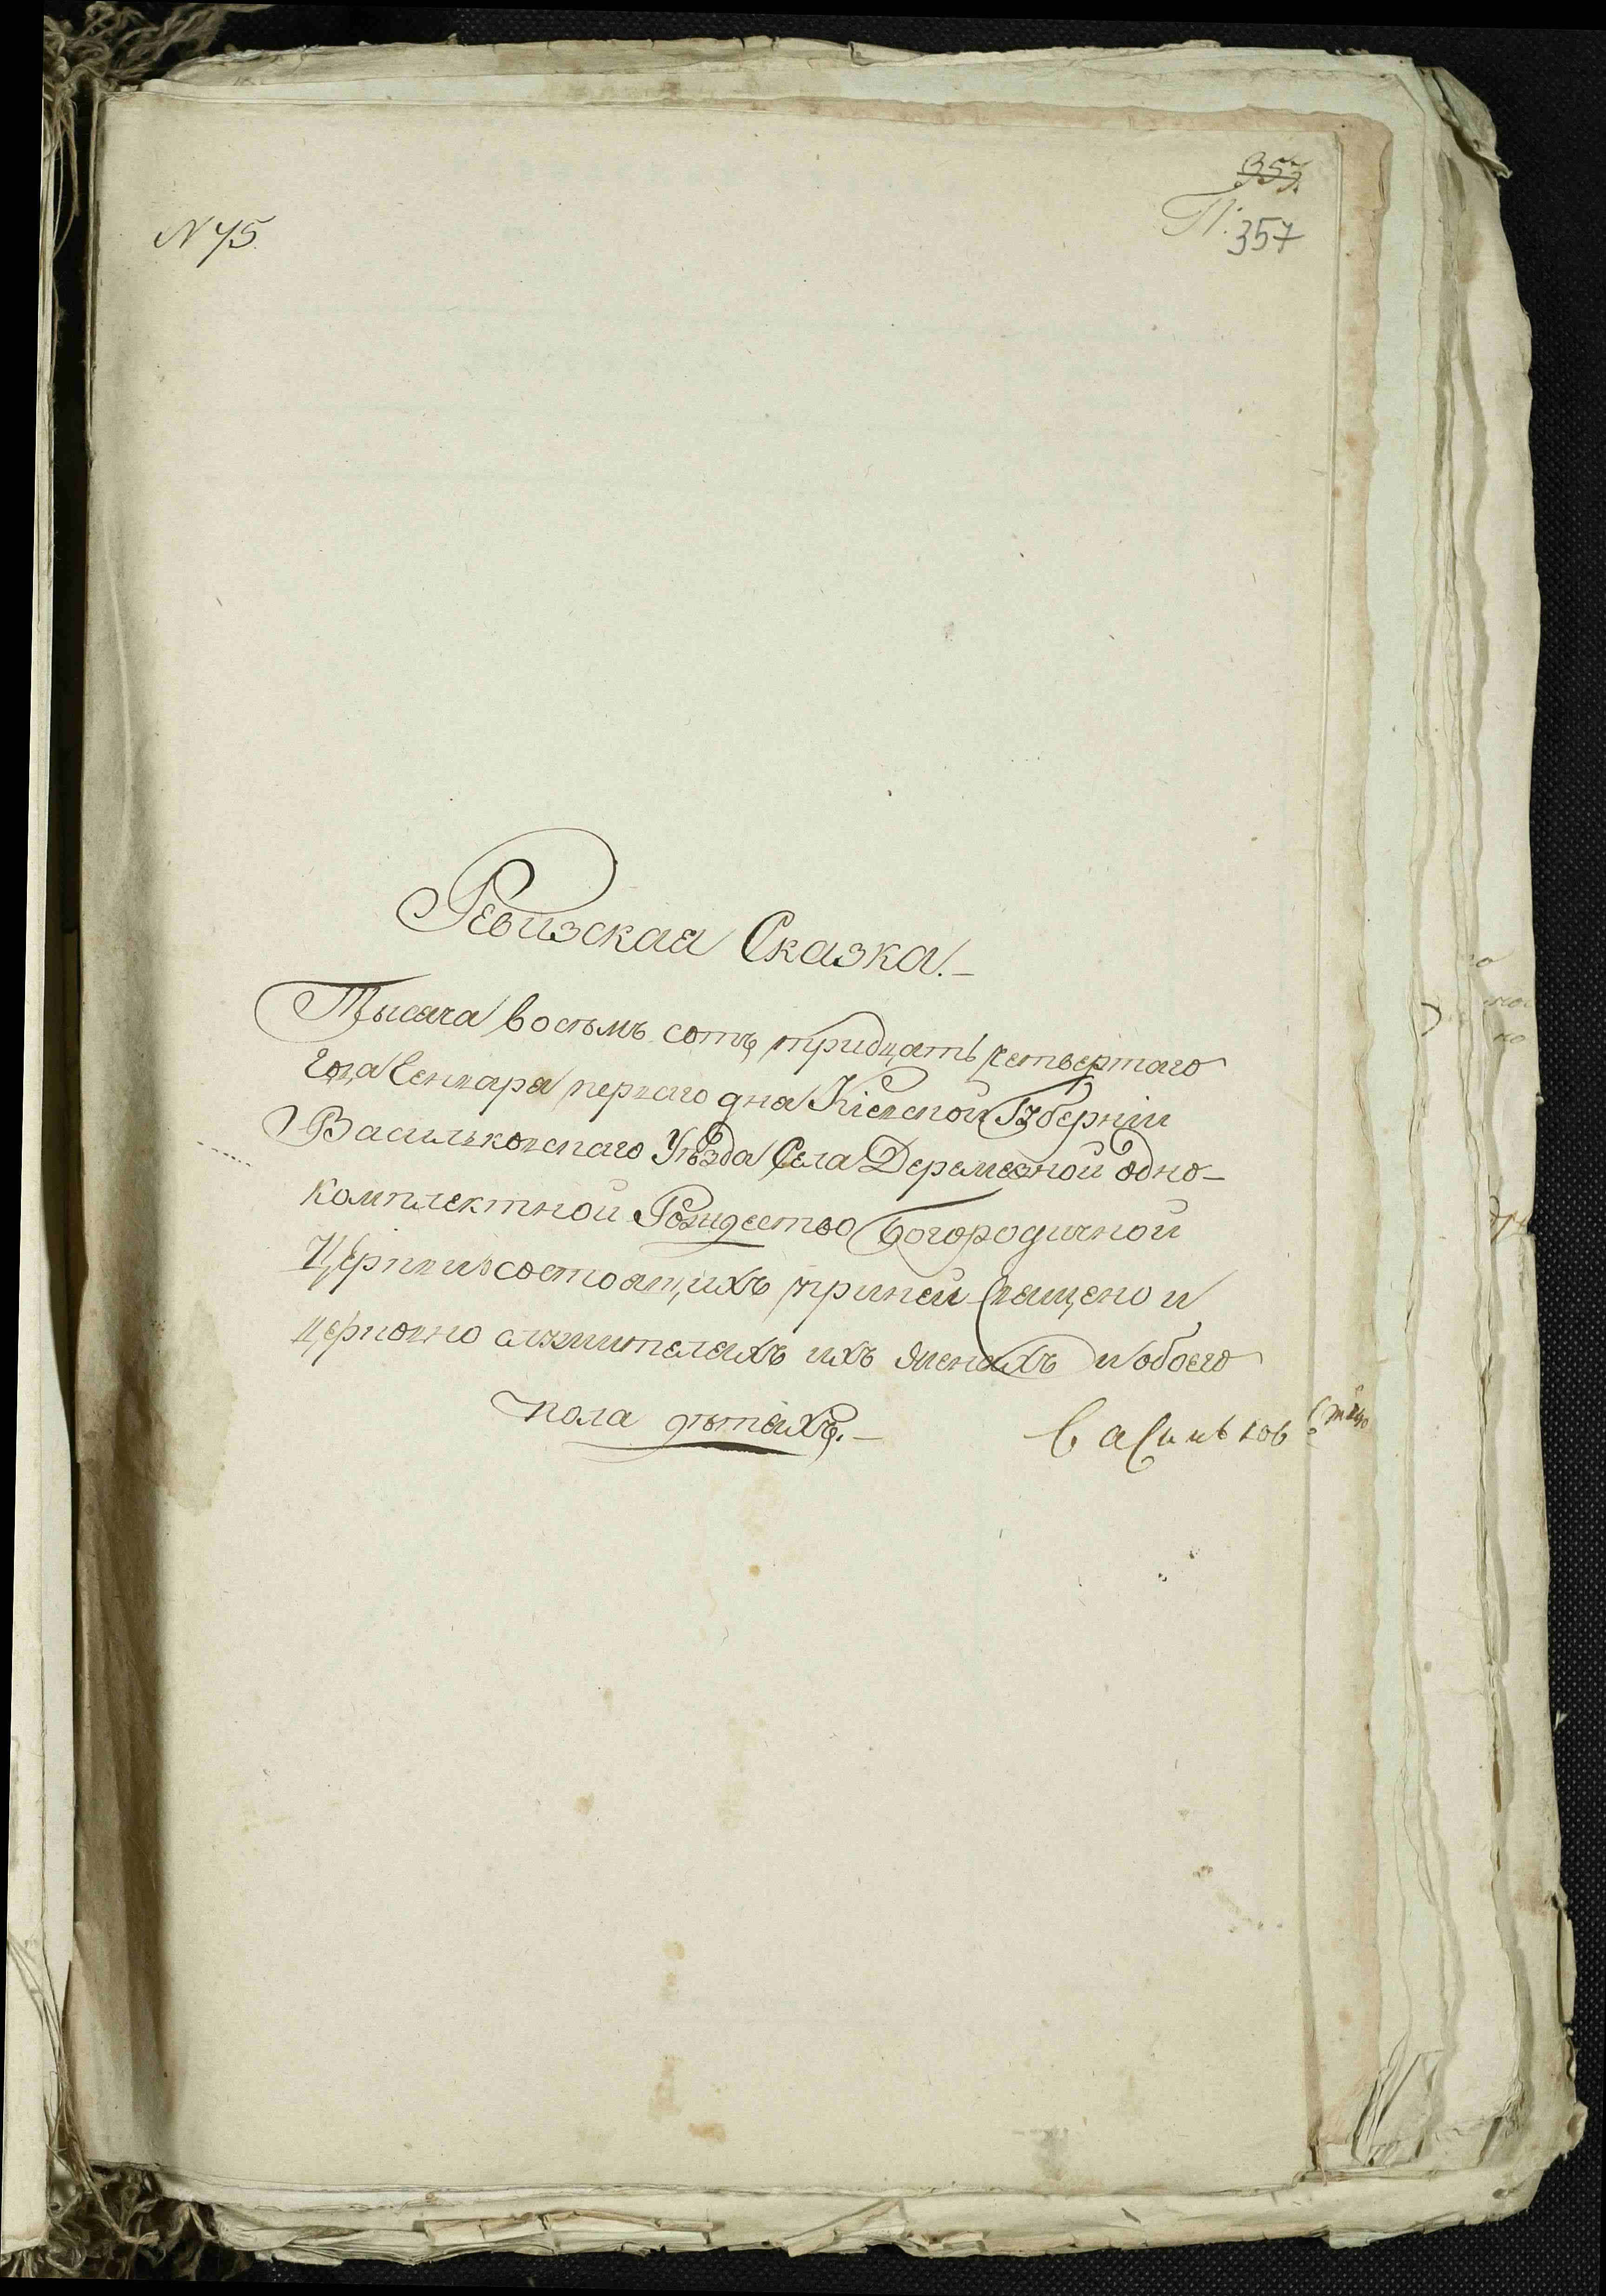 N 45.
357.
П. 357
Ревизская Сказка.–
Тысяча восемь сотъ тридцать четвертаго
года Генваря перваго дня Кіевской Губерніи
Васильковскаго Уѣзда Села Деремезной одно-
комплектной Рождество Богородичной
Церкви, состоящихъ приней Священо и
церковно служителяхъ ихъ женахъ и обоего
пола дѣтяхъ.–
Васильков